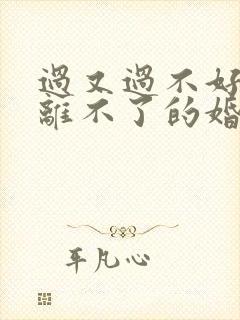 過又過不好
離不了的婚
平凡心